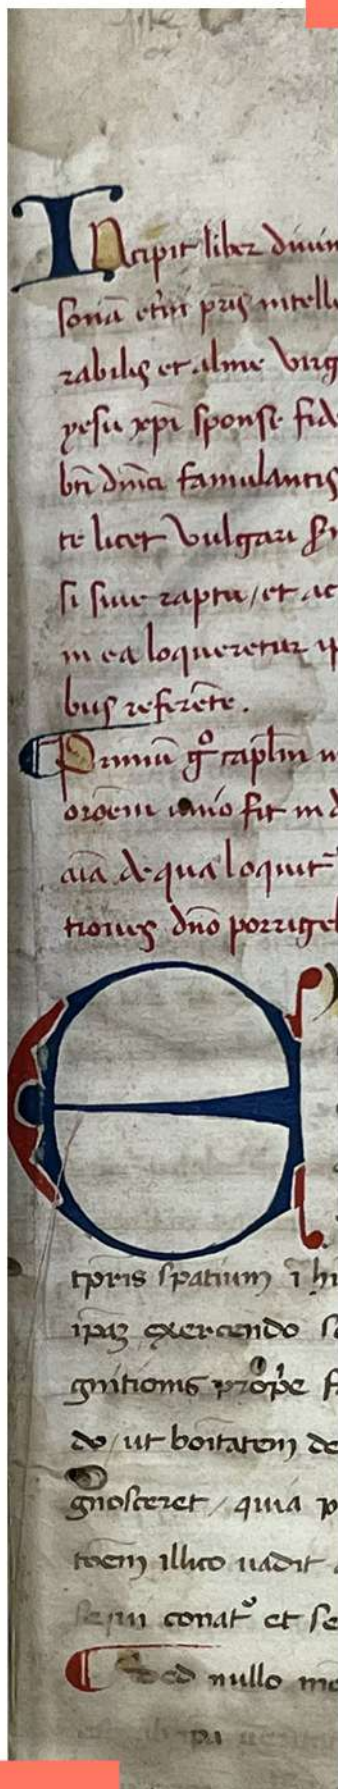 Incipit liber divin
sonā etni pris intelle
rabilis et alme virg
yesu xpi sponse fid
bti dnici famulantis
te licet vulgari
si sive raptu / et ac
in ea loqueretur
bus referēte.
Primū gͦ caplm
oroem fit in d
aīa de qua loquit
tiones dno porrige
E
tpris spatium ī hu
ipaz exercendo s
gnitionis prope f
do / ut boitatem de
gnosceret / quia p
toem illico uadit
conat᷒ et se
Sed nullo mo